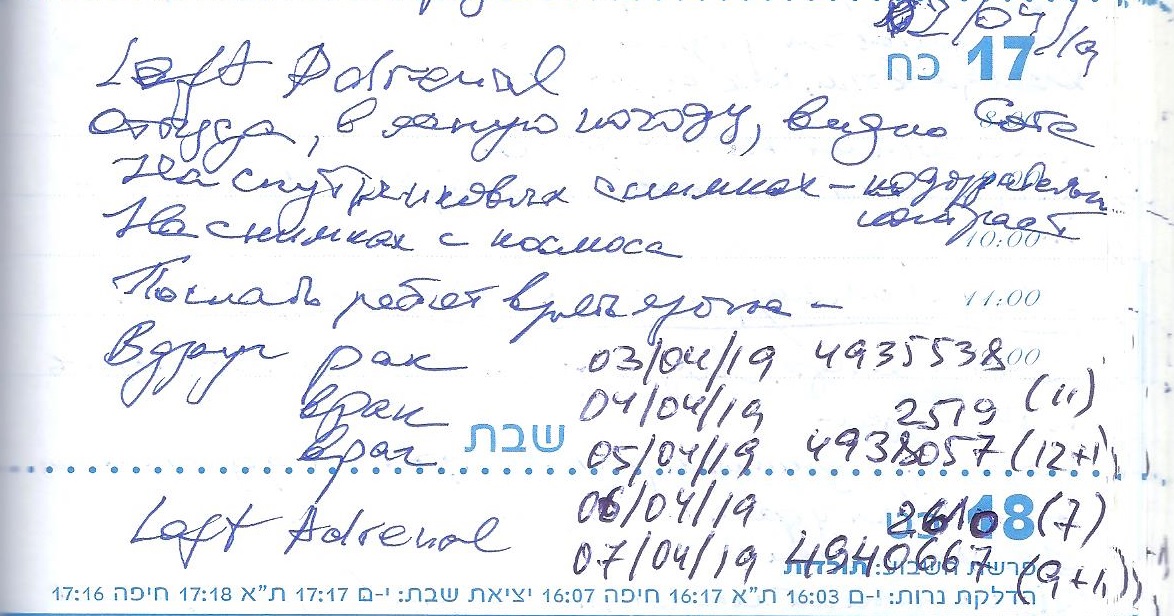 02/04/19
כח 17
Left Adrenal
откуда, в ясную погоду, видно
На спутниковых снимках – подозрительн
контраст
На снимках с космоса
10:00
Послать ребят
11:00
Вдруг рак 03/04/19 4935538
врак 04/04/19 2519 (11)
враг שבת 05/04/19 4938057 (12+1)
06/04/19 2610 (7)
18
Left Adrenal 07/04/19 4940667 (9+1)
פרשת השבוע: תולדות
הדלקת נרות: י-ם 16:03 ת"א 16:17 חיפה 16:07 יציאת שבת: י-ם 17:17 ת"א 17:18 חיפה 17:16